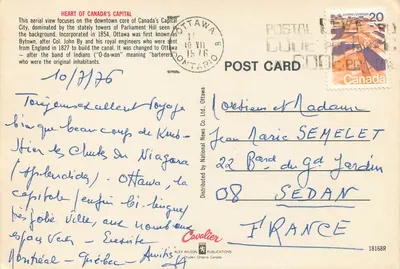 HEART OF CANADA'S CAPITAL
This aerial view focuses on the downtown core of Canada's Capital
City, dominated by the stately towers of Parliament Hill seen in
the background. Incorporated in 1854, Ottawa was first known as
Bytown, after Col. John By and his royal engineers who were sent
from England in 1827 to build the canal. It was changed to Ottawa
— after the band of Indians ("O-da-wan" meaning "barterers")
who were the original inhabitants.
OTTAWA
ONTARIO
POSTAL CODE
20
Canada
POST CARD
10/7/76
Toujours excellent voyage
bien que beaucoup de
les Chutes du Niagara
(splendides). Ottawa, la
capitale (enfin bi-lingue)
très jolie ville, aux nombreux
espaces verts - Ensuite
Montréal - Québec - Amitiés
Distributed by National News Co. Ltd. Ottawa
Monsieur et Madame
Jean Marie SEMELET
22 Bard du Gd Jardin
08 SEDAN
FRANCE
Cavalier
ALEX WILSON PUBLICATIONS
Dryden Ontario Canada
18168R